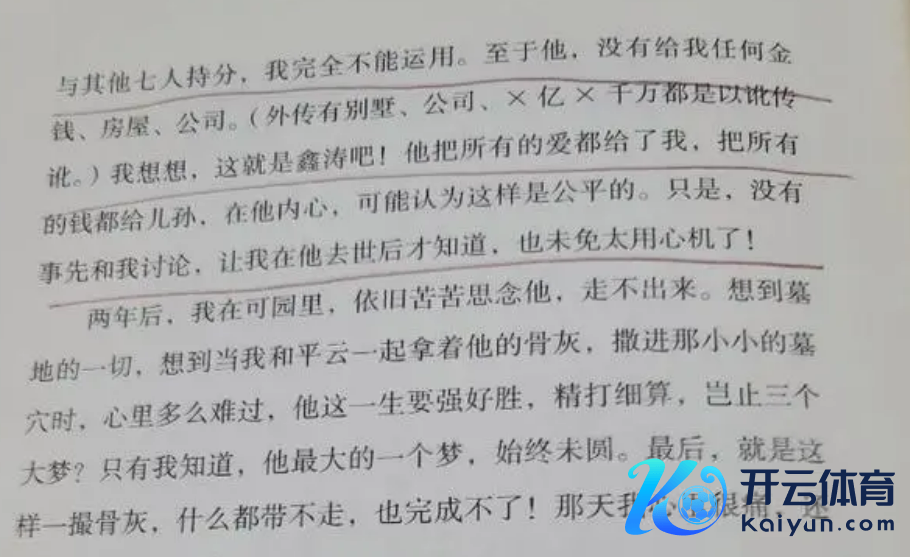 与其他七人持分，我完全不能运用。至于他，没有给我任何金
钱、房屋、公司。（外传有别墅、公司、×亿×千万都是以讹传
讹。）我想想，这就是鑫涛吧！他把所有的爱都给了我，把所有
的钱都给儿孙，在他内心，可能认为这样是公平的。只是，没有
事先和我讨论，让我在他去世后才知道，也未免太用心机了！
两年后，我在可园里，依旧苦苦思念他，走不出来。想到墓
地的一切，想到当我和平云一起拿着他的骨灰，撒进那小小的墓
穴时，心里多么难过，他这一生要强好胜，精打细算，岂止三个
大梦？只有我知道，他最大的一个梦，始终未圆。最后，就是这
样一撮骨灰，什么都带不走，也完成不了！那天我心里很痛，还
开云体育
Kaiyun.com